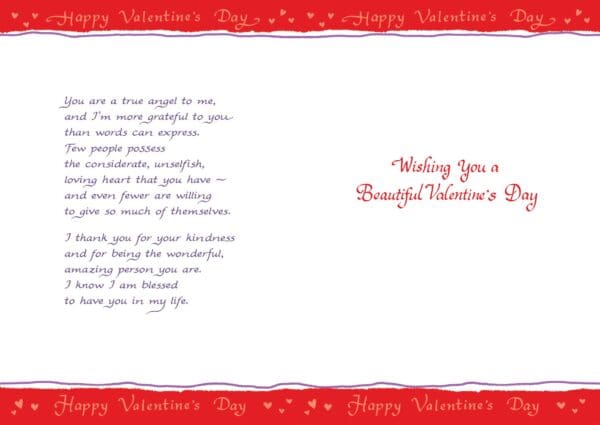 Happy Valentine's Day
Happy Valentine's Day
You are a true angel to me,
and I'm more grateful to you
than words can express.
Few people possess
the considerate, unselfish,
loving heart that you have ~
and even fewer are willing
to give so much of themselves.
I thank you for your kindness
and for being the wonderful,
amazing person you are.
I know I am blessed
to have you in my life.
Wishing You a
Beautiful Valentine's Day
Happy Valentine's Day
Happy Valentine's Day